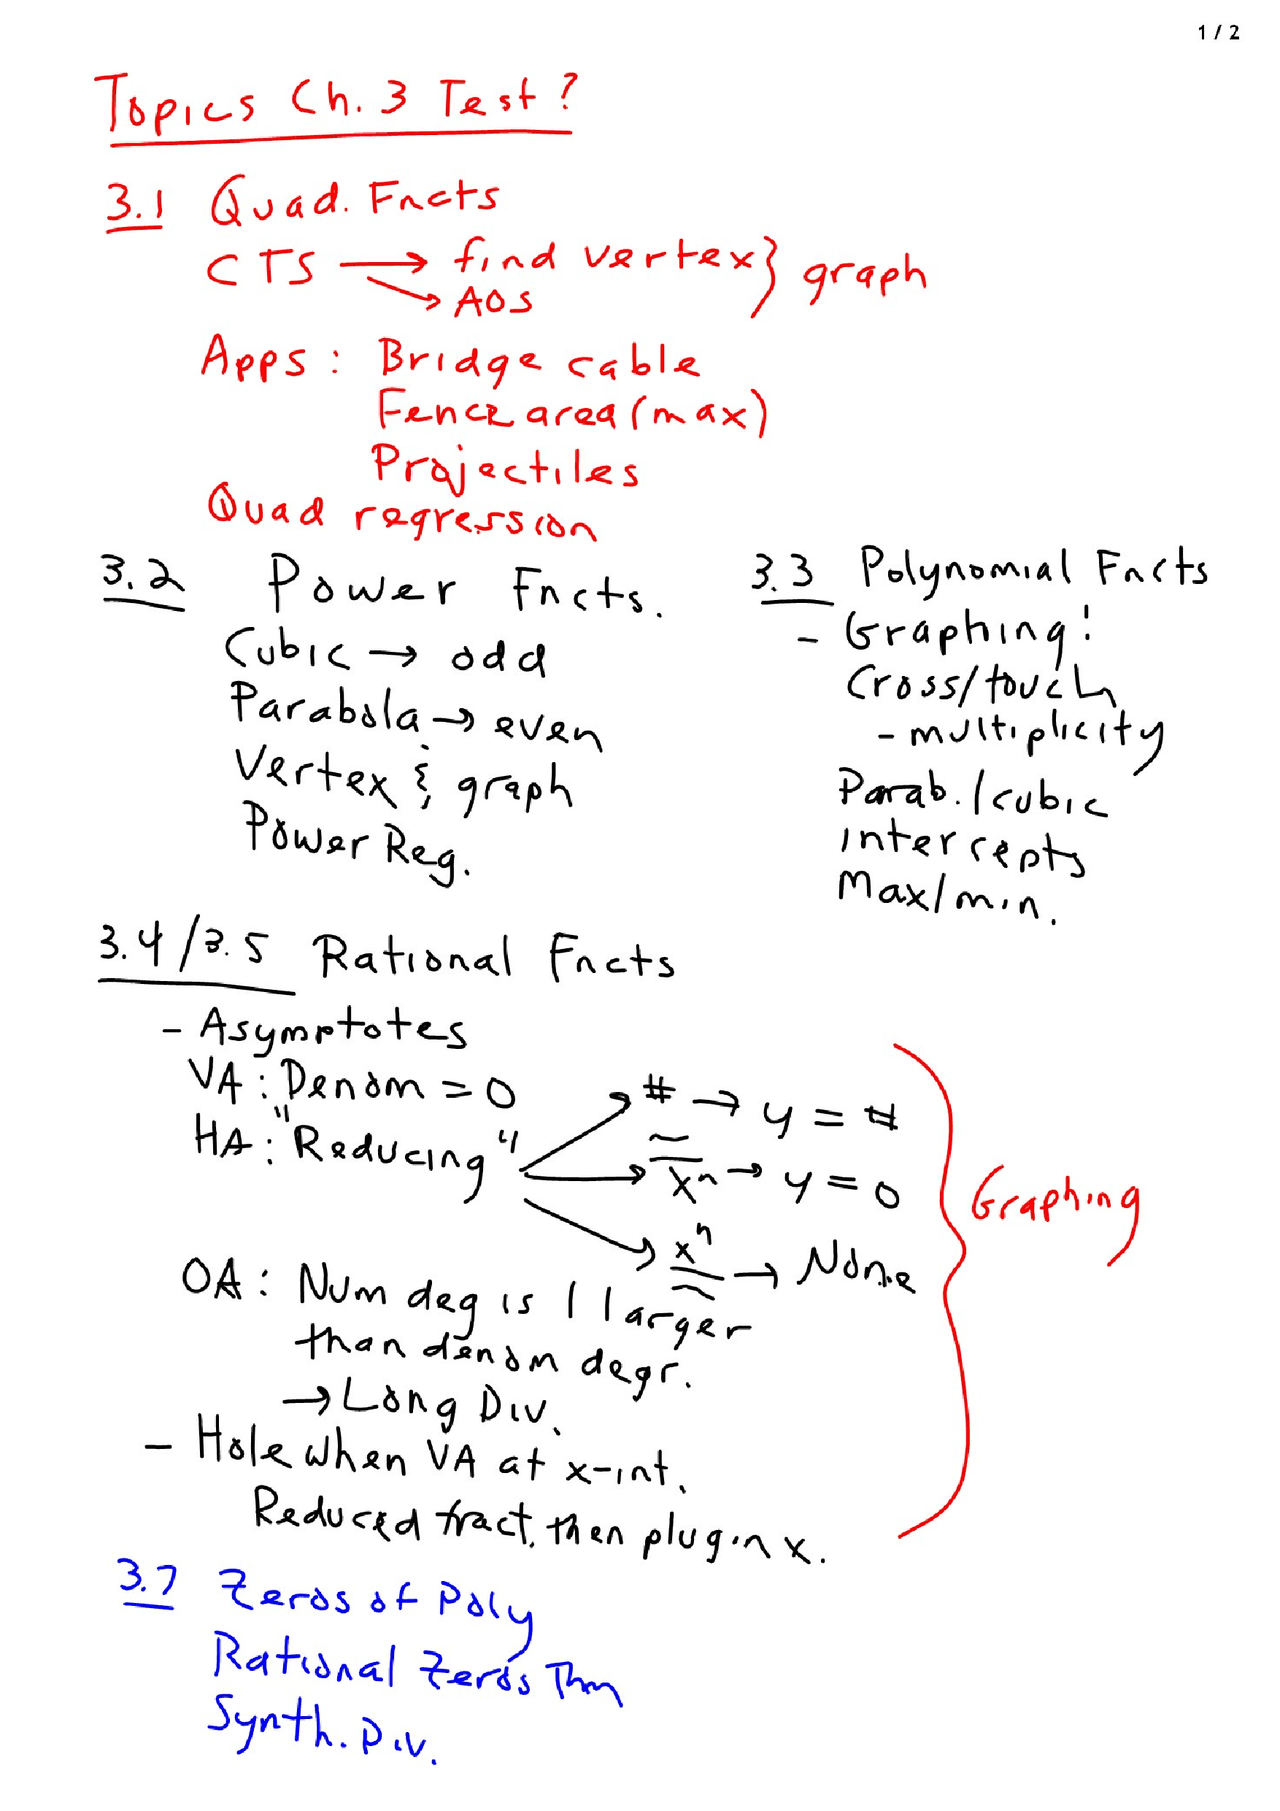 1 / 2
Topics Ch. 3 Test?
3.1 Quad. Fncts
CTS → find vertex } graph
→ AOS
Apps: Bridge cable
Fence area (max)
Projectiles
Quad regression
3.2 Power Fncts.
Cubic → odd
Parabola → even
Vertex & graph
Power Reg.
3.3 Polynomial Fncts
- Graphing!
Cross/touch
- multiplicity
Parab./cubic
intercepts
Max/min.
3.4/3.5 Rational Fncts
- Asymptotes
VA: Denom = 0
HA: "Reducing"
→ # → y = #
→ ~/xⁿ → y = 0
→ xⁿ/~ → None
OA: Num deg is 1 larger
than denom degr.
→ Long Div.
- Hole when VA at x-int.
Reduced fract. then plug in x.
} Graphing
3.7 Zeros of Poly
Rational Zeros Thm
Synth. Div.